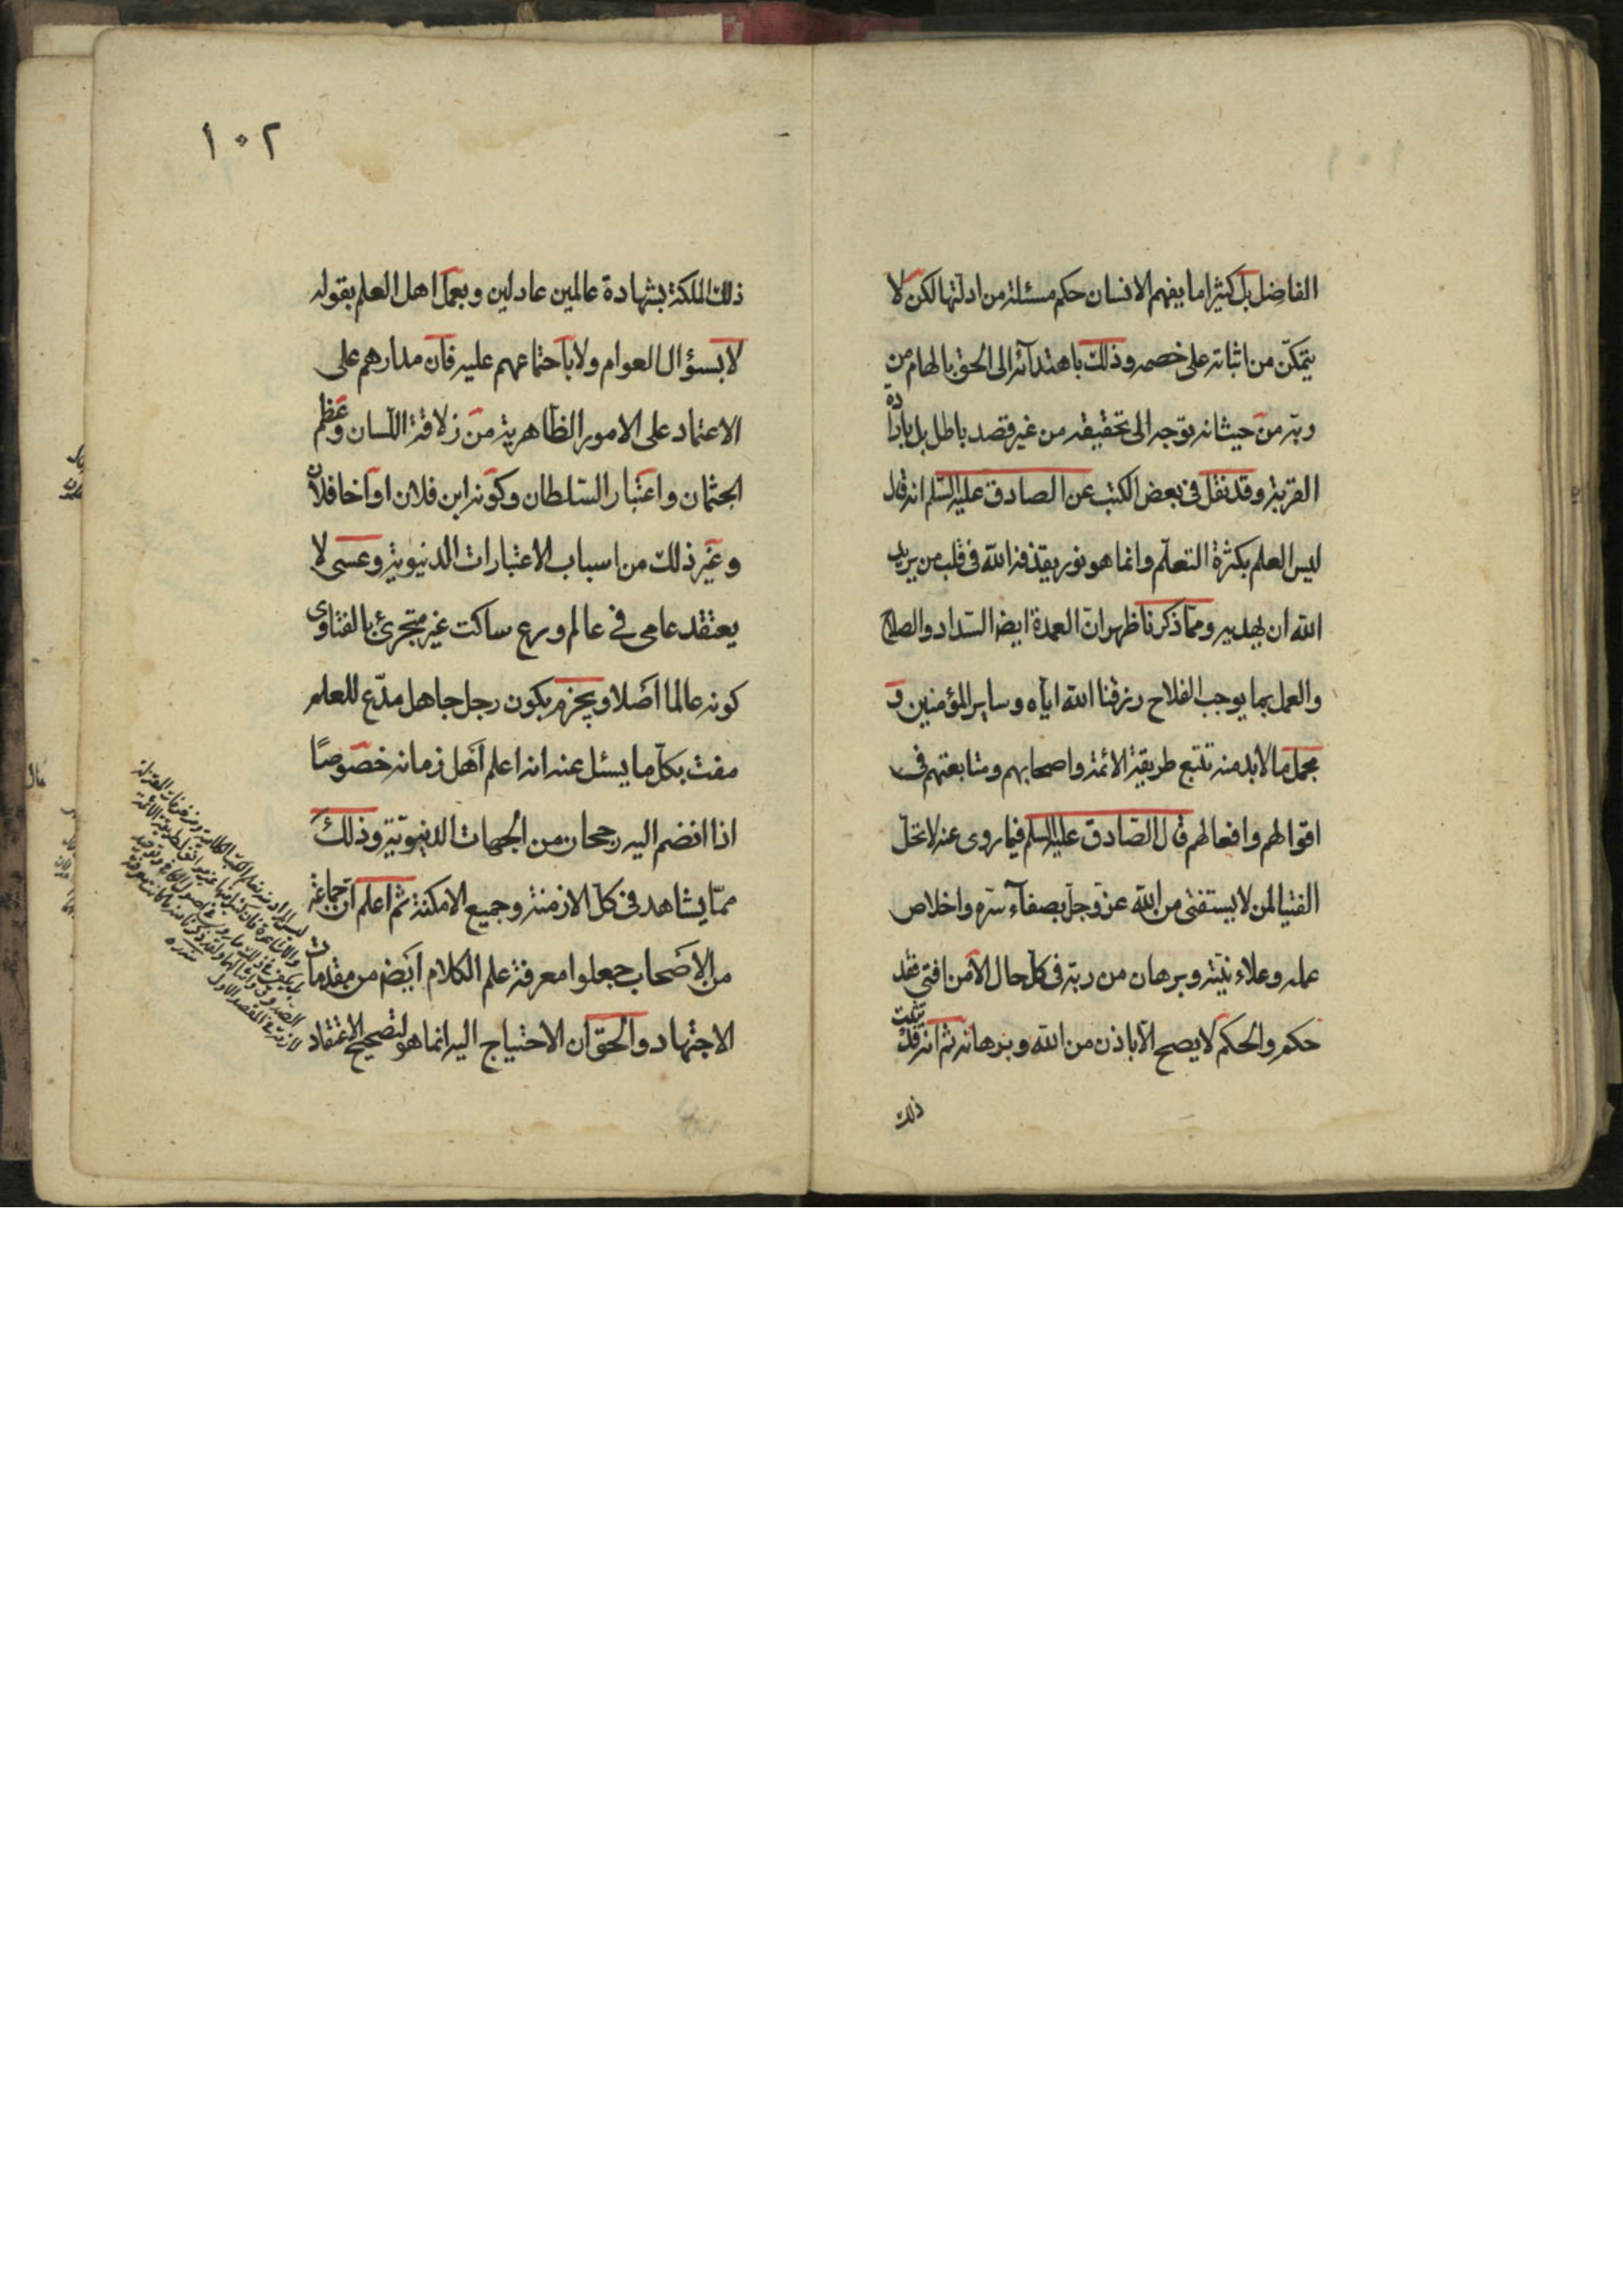 الفاضل بل كثيرا ما يفهم الانسان حكم مسئلة من ادلتها لكن لا
يتمكّن من اثباته على خصمه وذلك باهتدآئه الى الحق بالهام من
ربّه من حيث انه توجه الى تحقيقه من غير قصد باطل بل بارادة
القربة وقد نقل فى بعض الكتب عن الصادق عليه السّلم انه قال
ليس العلم بكثرة التعلّم وانما هو نور يقذفه الله فى قلب من يريد
الله ان يهديه وممّا ذكرنا ظهر انّ العمدة ايضا السّداد والصلاح
والعمل بما يوجب الفلاح رزقنا الله ايّاه وساير المؤمنين و
مجمل ما لابد منه تتبع طريقة الائمة واصحابهم ومتابعتهم فى
اقوالهم وافعالهم قال الصّادق عليه السلم فيما روى عنه لا تحلّ
الفتيا لمن لا يستفتى من الله عزّ وجلّ بصفآء سرّه واخلاص
عمله وعلاء نيّته وبرهان من ربّه فى كل حال لانّ من افتى فقد
حكم والحكم لا يصح الّا باذن من الله وبرهانه ثم انه قد يثبت
ذلك
١٠٢
ذلك الملكة بشهادة عالمين عادلين وبعمل اهل العلم بقوله
لا بسؤال العوام ولا باجتماعهم عليه فان مدارهم على
الاعتماد على الامور الظاهرية من زلاقة اللّسان وعظم
الجثمان واعتبار السّلطان وكونه ابن فلان او اخا فلان
وغير ذلك من اسباب الاعتبارات الدنيوية وعسى لا
يعتقد عامى فى عالم ورع ساكت غير متجرئ بالفتاوى
كونه عالما اصلا ويجزم بكون رجل جاهل مدّع للعلم
مفت بكلّ ما يسئل عنه انه اعلم اهل زمانه خصوصًا
اذا انضم اليه رجحان من الجهات الدنيويّة وذلك
ممّا يشاهد فى كلّ الازمنة وجميع الامكنة ثم اعلم انّ جماعة
من الاصحاب جعلوا معرفة علم الكلام ايضا من مقدمات
الاجتهاد والحقّ ان الاحتياج اليه انما هو لتصحيح الاعتقاد